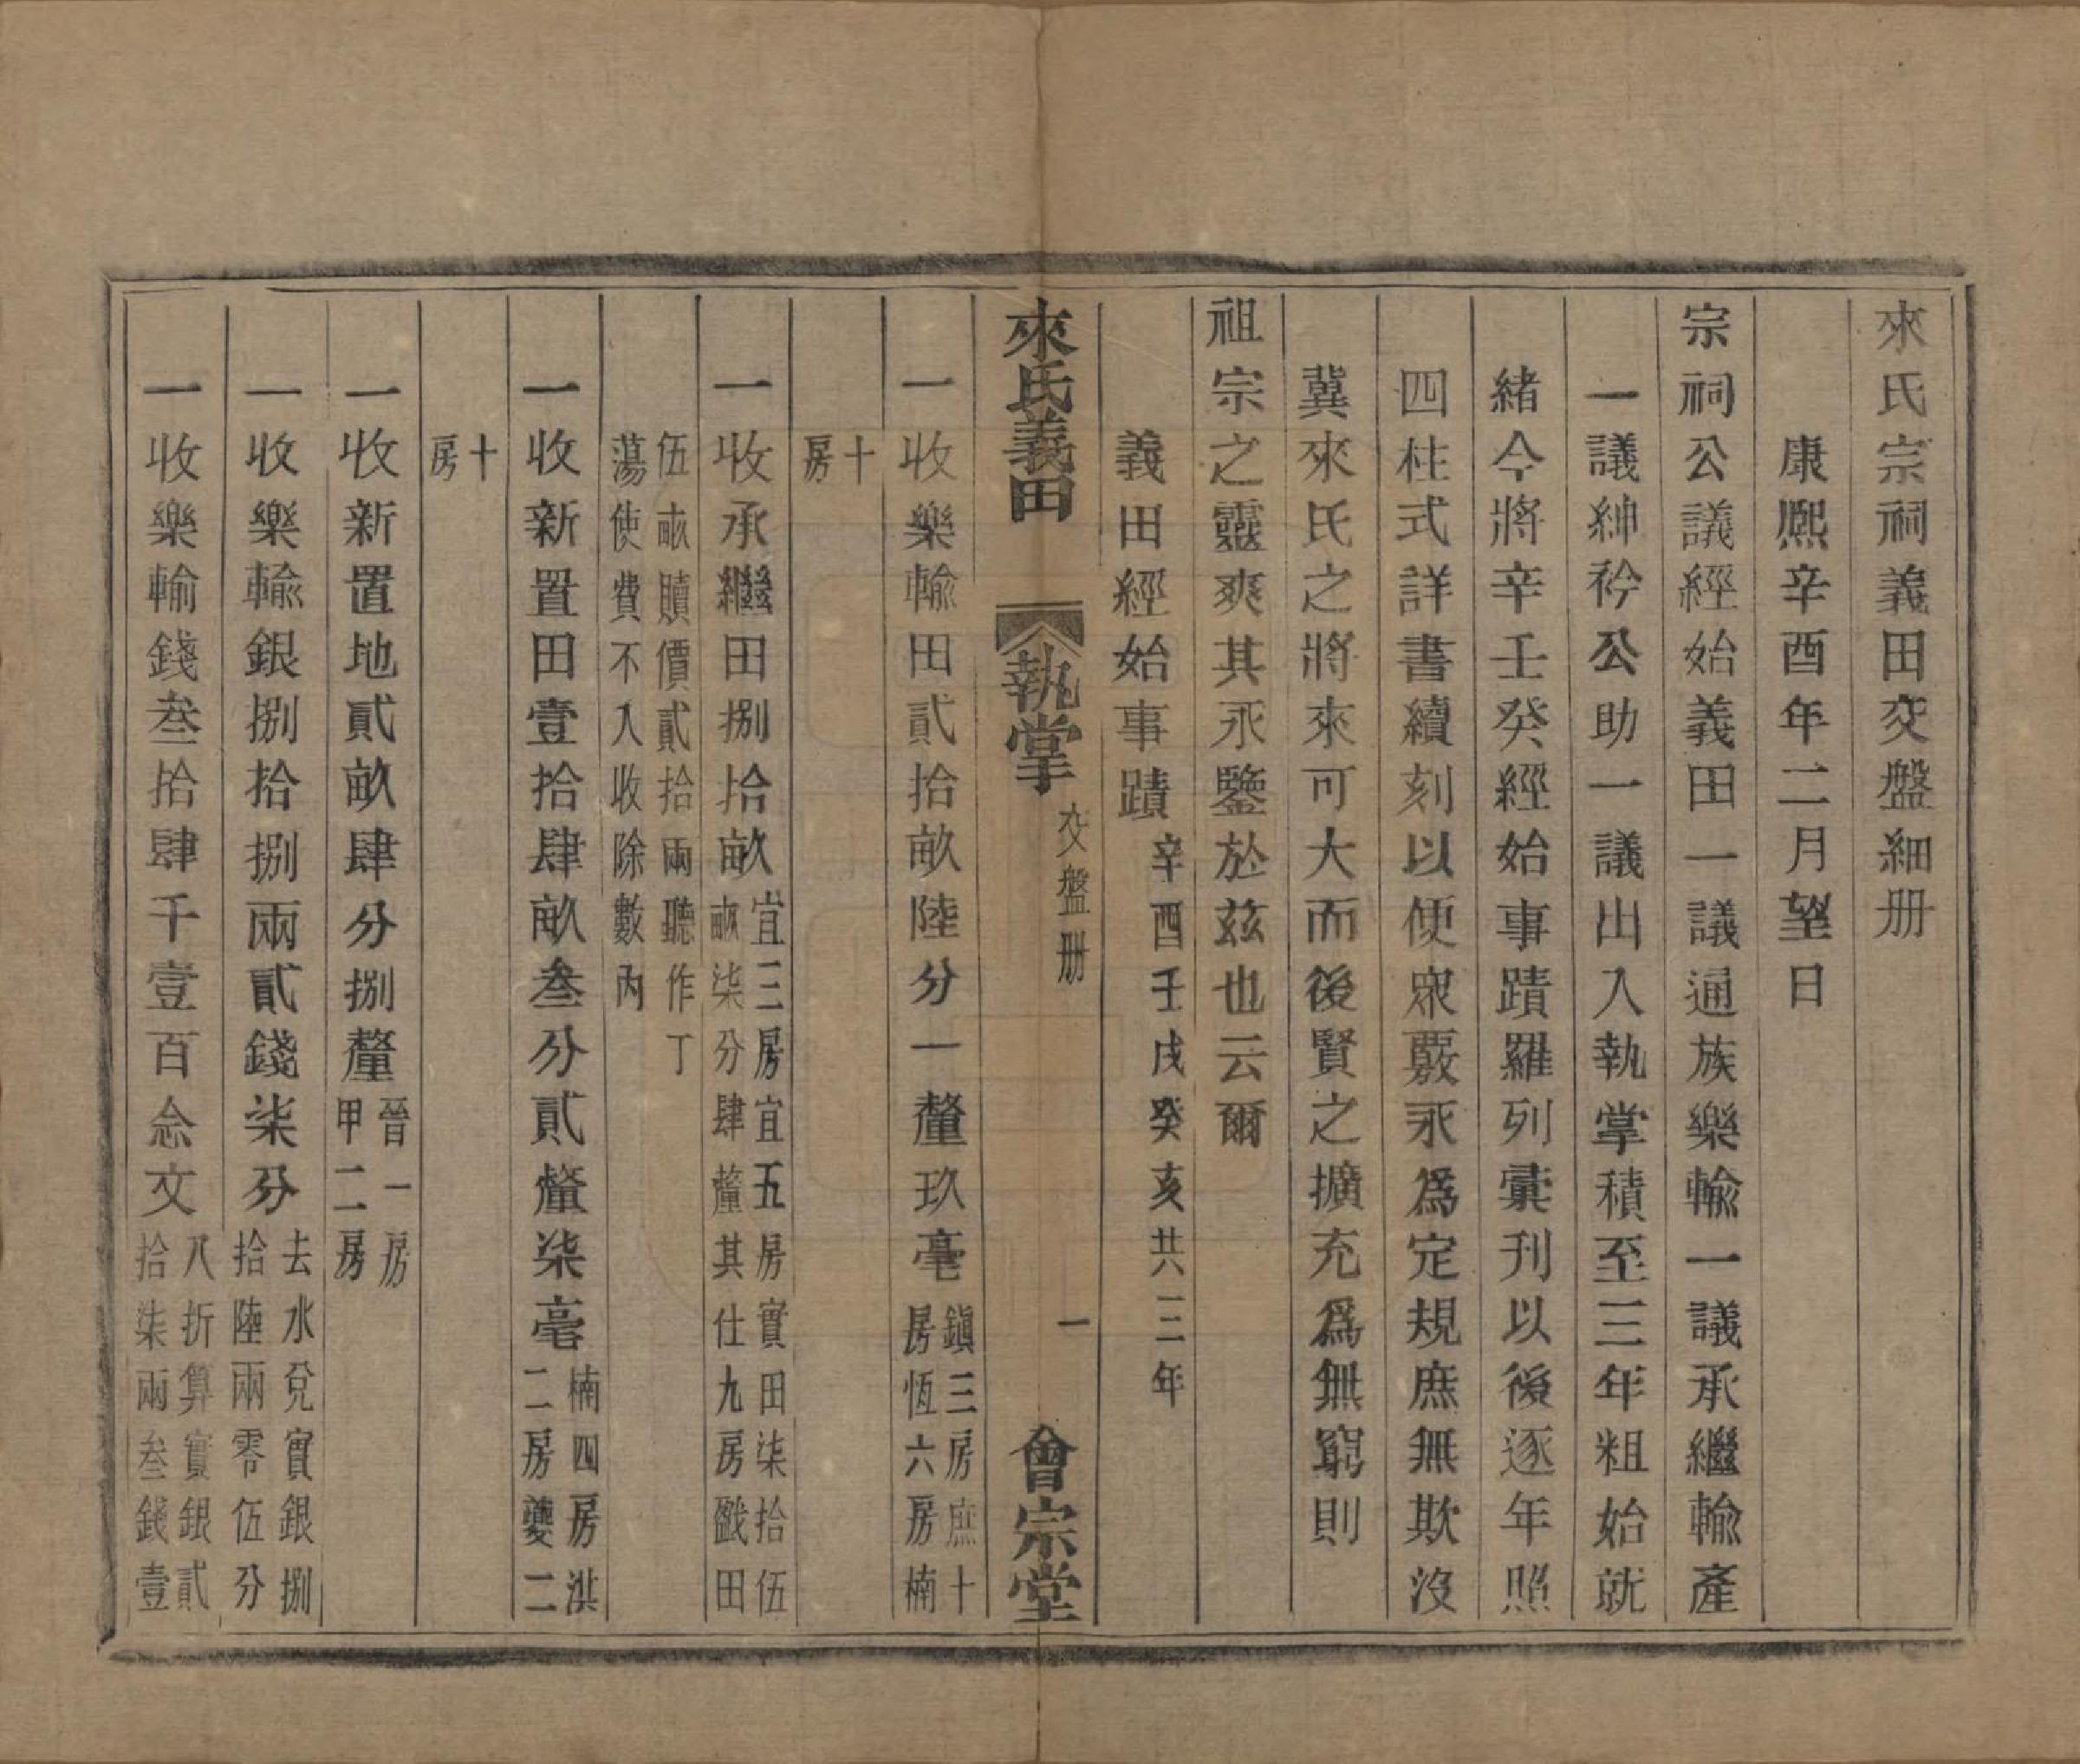 來氏宗祠義田交盤細册
康熙辛酉年二月望日
宗祠公議經始義田一議通族樂輸一議承繼輸產
一議紳衿公助一議出入執掌積至三年粗始就
緒今將辛壬癸經始事蹟羅列彙刊以後逐年照
四柱式詳書續刻以便衆覈永爲定規庶無欺沒
冀來氏之將來可大而後賢之擴充爲無窮則
祖宗之靈爽其永鑒於茲也云爾
義田經始事蹟辛酉壬戌癸亥共三年
來氏義田 執掌 交盤册 一 會宗堂
一收樂輸田貳拾畝陸分一釐玖毫鎭三房庶十
房恆六房楠
十
房
一收承繼田捌拾畝宜三房宜五房實田柒拾伍
畝柒分肆釐其仕九房戤田
伍畝贖價貳拾兩聽作丁
蕩使費不入收除數內
一收新置田壹拾肆畝叁分貳釐柒毫楠四房洪
二房夔二
十
房
一收新置地貳畝肆分捌釐晉一房
甲二房
一收樂輸銀捌拾捌兩貳錢柒分去水兌實銀捌
拾陸兩零伍分
一收樂輸錢叁拾肆千壹百念文八折算實銀貳
拾柒兩叁錢壹